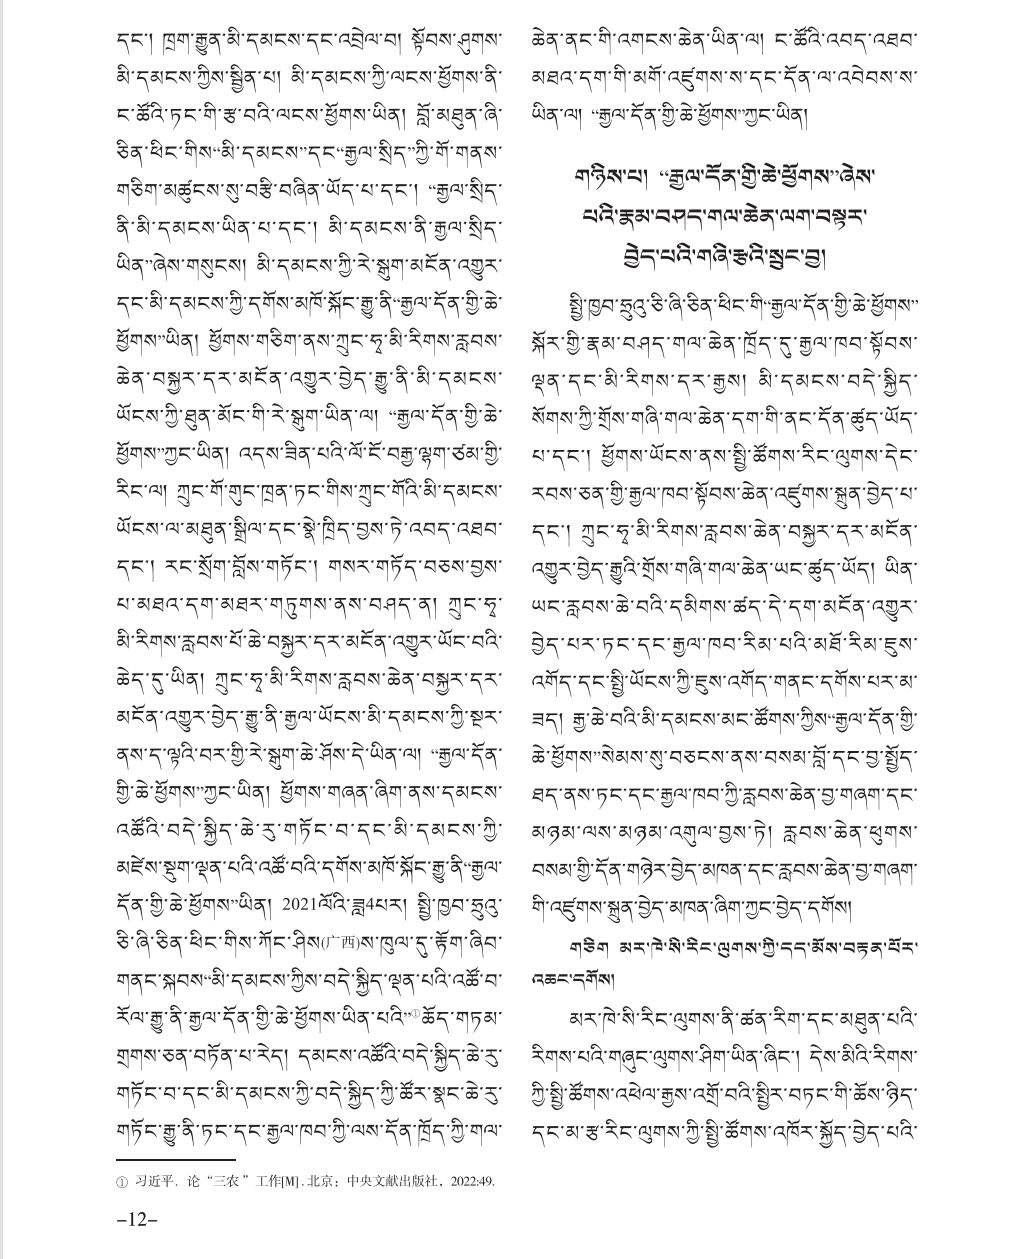 དང་། ཁྲག་རྒྱུན་མི་དམངས་དང་འབྲེལ་བ། སྟོབས་ཤུགས་
མི་དམངས་ཀྱིས་སྦྱིན་པ། མི་དམངས་ཀྱི་ལངས་ཕྱོགས་ནི་
ང་ཚོའི་ཏང་གི་རྩ་བའི་ལངས་ཕྱོགས་ཡིན། བློ་མཐུན་ཞི་
ཅིན་ཕིང་གིས“མི་དམངས”དང“རྒྱལ་སྲིད”ཀྱི་གོ་གནས་
གཅིག་མཚུངས་སུ་བརྩི་བཞིན་ཡོད་པ་དང་། “རྒྱལ་སྲིད་
ནི་མི་དམངས་ཡིན་པ་དང་། མི་དམངས་ནི་རྒྱལ་སྲིད་
ཡིན”ཞེས་གསུངས། མི་དམངས་ཀྱི་རེ་སྒུག་མངོན་འགྱུར་
དང་མི་དམངས་ཀྱི་དགོས་མཁོ་སྐོང་རྒྱུ་ནི“རྒྱལ་དོན་གྱི་ཆེ་
ཕྱོགས”ཡིན། ཕྱོགས་གཅིག་ནས་ཀྲུང་ཧྭ་མི་རིགས་རླབས་
ཆེན་བསྐྱར་དར་མངོན་འགྱུར་བྱེད་རྒྱུ་ནི་མི་དམངས་
ཡོངས་ཀྱི་ཐུན་མོང་གི་རེ་སྒུག་ཡིན་ལ། “རྒྱལ་དོན་གྱི་ཆེ་
ཕྱོགས”ཀྱང་ཡིན། འདས་ཟིན་པའི་ལོ་ངོ་བརྒྱ་ལྷག་ཙམ་གྱི་
རིང་ལ། ཀྲུང་གོ་གུང་ཁྲན་ཏང་གིས་ཀྲུང་གོའི་མི་དམངས་
ཡོངས་ལ་མཐུན་སྒྲིལ་དང་སྣེ་ཁྲིད་བྱས་ཏེ་འབད་འཐབ་
དང་། རང་སྲོག་བློས་གཏོང་། གསར་གཏོད་བཅས་བྱས་
པ་མཐའ་དག་མཐར་གཏུགས་ནས་བཤད་ན། ཀྲུང་ཧྭ་
མི་རིགས་རླབས་པོ་ཆེ་བསྐྱར་དར་མངོན་འགྱུར་ཡོང་བའི་
ཆེད་དུ་ཡིན། ཀྲུང་ཧྭ་མི་རིགས་རླབས་ཆེན་བསྐྱར་དར་
མངོན་འགྱུར་བྱེད་རྒྱུ་ནི་རྒྱལ་ཡོངས་མི་དམངས་ཀྱི་སྔར་
ནས་ད་ལྟའི་བར་གྱི་རེ་སྒུག་ཆེ་ཤོས་དེ་ཡིན་ལ། “རྒྱལ་དོན་
གྱི་ཆེ་ཕྱོགས”ཀྱང་ཡིན། ཕྱོགས་གཞན་ཞིག་ནས་དམངས་
འཚོའི་བདེ་སྐྱིད་ཆེ་རུ་གཏོང་བ་དང་མི་དམངས་ཀྱི་
མཛེས་སྡུག་ལྡན་པའི་འཚོ་བའི་དགོས་མཁོ་སྐོང་རྒྱུ་ནི“རྒྱལ་
དོན་གྱི་ཆེ་ཕྱོགས”ཡིན། 2021ལོའི་ཟླ4པར། སྤྱི་ཁྱབ་ཧྲུའུ་
ཅི་ཞི་ཅིན་ཕིང་གིས་ཀོང་ཤིས(广西)ས་ཁུལ་དུ་རྟོག་ཞིབ་
གནང་སྐབས“མི་དམངས་ཀྱིས་བདེ་སྐྱིད་ལྡན་པའི་འཚོ་བ་
རོལ་རྒྱུ་ནི་རྒྱལ་དོན་གྱི་ཆེ་ཕྱོགས་ཡིན་པའི”①ཆོད་གཏམ་
གྲགས་ཅན་བཏོན་པ་རེད། དམངས་འཚོའི་བདེ་སྐྱིད་ཆེ་རུ་
གཏོང་བ་དང་མི་དམངས་ཀྱི་བདེ་སྐྱིད་ཀྱི་ཚོར་སྣང་ཆེ་རུ་
གཏོང་རྒྱུ་ནི་ཏང་དང་རྒྱལ་ཁབ་ཀྱི་ལས་དོན་ཁྲོད་ཀྱི་གལ་
① 习近平. 论“三农”工作[M].北京：中央文献出版社，2022:49.
–12–
ཆེན་ནང་གི་འགངས་ཆེན་ཡིན་ལ། ང་ཚོའི་འབད་འཐབ་
མཐའ་དག་གི་མགོ་འཛུགས་ས་དང་དོན་ལ་འབེབས་ས་
ཡིན་ལ། “རྒྱལ་དོན་གྱི་ཆེ་ཕྱོགས”ཀྱང་ཡིན།
གཉིས་པ། “རྒྱལ་དོན་གྱི་ཆེ་ཕྱོགས”ཞེས་
པའི་རྣམ་བཤད་གལ་ཆེན་ལག་བསྟར་
བྱེད་པའི་གཞི་རྩའི་སྲུང་བྱ།
སྤྱི་ཁྱབ་ཧྲུའུ་ཅི་ཞི་ཅིན་ཕིང་གི“རྒྱལ་དོན་གྱི་ཆེ་ཕྱོགས”
སྐོར་གྱི་རྣམ་བཤད་གལ་ཆེན་ཁྲོད་དུ་རྒྱལ་ཁབ་སྟོབས་
ལྡན་དང་མི་རིགས་དར་རྒྱས། མི་དམངས་བདེ་སྐྱིད་
སོགས་ཀྱི་གྲོས་གཞི་གལ་ཆེན་དག་གི་ནང་དོན་ཚུད་ཡོད་
པ་དང་། ཕྱོགས་ཡོངས་ནས་སྤྱི་ཚོགས་རིང་ལུགས་དེང་
རབས་ཅན་གྱི་རྒྱལ་ཁབ་སྟོབས་ཆེན་འཛུགས་སྐྲུན་བྱེད་པ་
དང་། ཀྲུང་ཧྭ་མི་རིགས་རླབས་ཆེན་བསྐྱར་དར་མངོན་
འགྱུར་བྱེད་རྒྱུའི་གྲོས་གཞི་གལ་ཆེན་ཡང་ཚུད་ཡོད། ཡིན་
ཡང་རླབས་ཆེ་བའི་དམིགས་ཚད་དེ་དག་མངོན་འགྱུར་
བྱེད་པར་ཏང་དང་རྒྱལ་ཁབ་རིམ་པའི་མཐོ་རིམ་ཇུས་
འགོད་དང་སྤྱི་ཡོངས་ཀྱི་ཇུས་འགོད་གནང་དགོས་པར་མ་
ཟད། རྒྱ་ཆེ་བའི་མི་དམངས་མང་ཚོགས་ཀྱིས“རྒྱལ་དོན་གྱི་
ཆེ་ཕྱོགས”སེམས་སུ་བཅངས་ནས་བསམ་བློ་དང་བྱ་སྤྱོད་
ཐད་ནས་ཏང་དང་རྒྱལ་ཁབ་ཀྱི་རླབས་ཆེན་བྱ་གཞག་དང་
མཉམ་ལས་མཉམ་འགུལ་བྱས་ཏེ། རླབས་ཆེན་ཕུགས་
བསམ་གྱི་དོན་གཉེར་བྱེད་མཁན་དང་རླབས་ཆེན་བྱ་གཞག་
གི་འཛུགས་སྐྲུན་བྱེད་མཁན་ཞིག་ཀྱང་བྱེད་དགོས།
གཅིག མར་ཁེ་སི་རིང་ལུགས་ཀྱི་དད་མོས་བརྟན་པོར་
འཆང་དགོས།
མར་ཁེ་སི་རིང་ལུགས་ནི་ཚན་རིག་དང་མཐུན་པའི་
རིགས་པའི་གཞུང་ལུགས་ཤིག་ཡིན་ཞིང་། དེས་མིའི་རིགས་
ཀྱི་སྤྱི་ཚོགས་འཕེལ་རྒྱས་འགྲོ་བའི་སྤྱིར་བཏང་གི་ཆོས་ཉིད་
དང་མ་རྩ་རིང་ལུགས་ཀྱི་སྤྱི་ཚོགས་འཁོར་སྐྱོད་བྱེད་པའི་